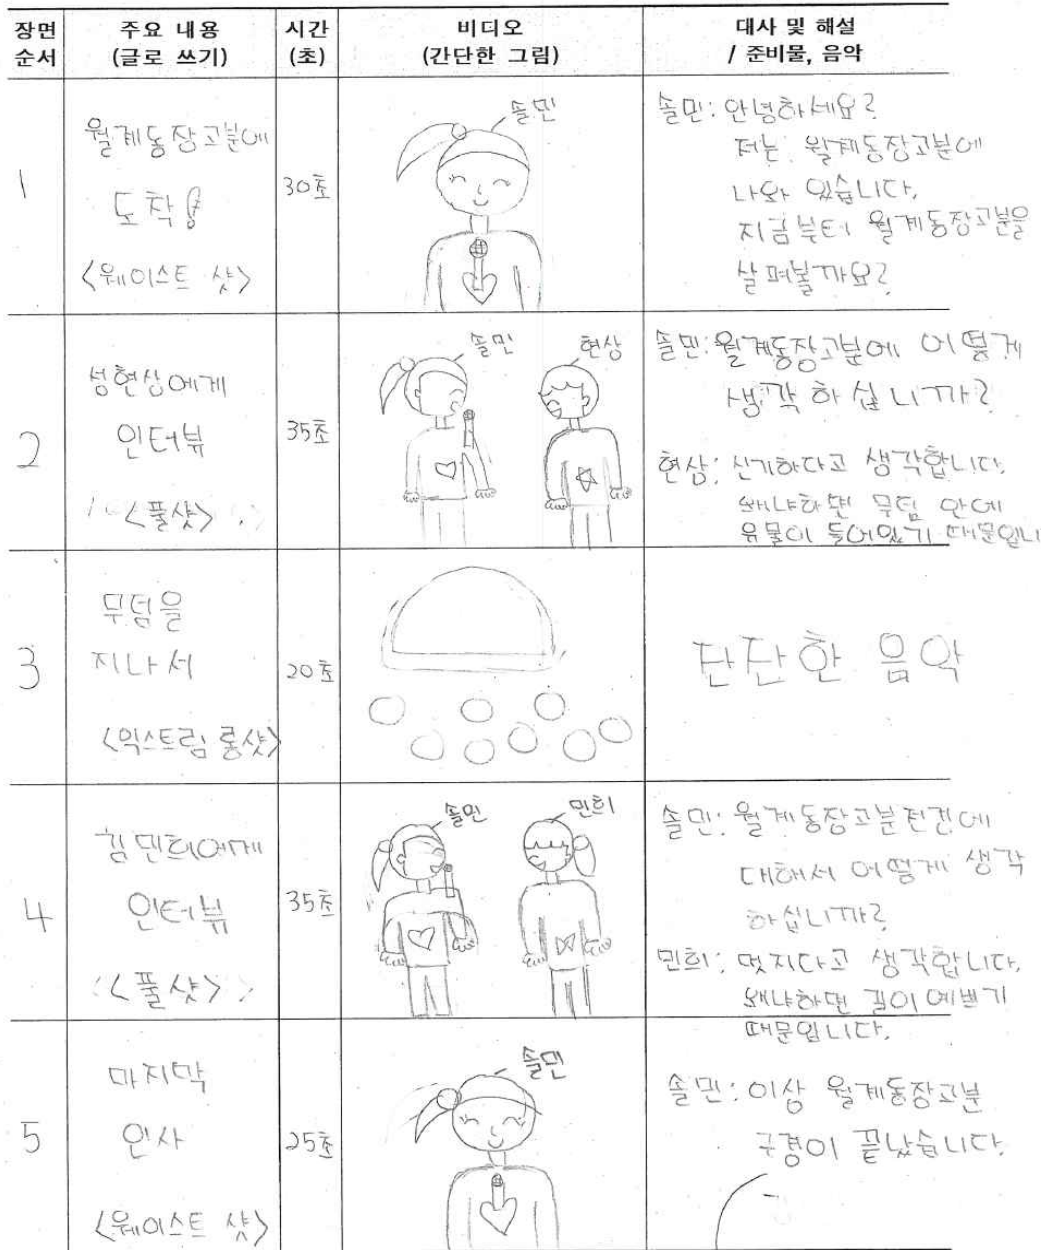 장면 순서
주요 내용 (글로 쓰기)
시간 (초)
비디오 (간단한 그림)
대사 및 해설 / 준비물, 음악
1
월계동장고분에
도착
<웨이스트 샷>
30초
솔민
솔민: 안녕하세요?
저는 월계동장고분에
나와 있습니다.
지금부터 월계동장고분을
살펴볼까요?
2
성현상에게
인터뷰
<풀샷>
35초
솔민
현상
솔민: 월계동장고분에 어떻게
생각하십니까?
현상: 신기하다고 생각합니다.
왜냐하면 무덤 안에
유물이 들어있기 때문입니
3
무덤을
지나서
<익스트림 롱샷>
20초
단단한 음악
4
김민희에게
인터뷰
<풀샷>
35초
솔민
민희
솔민: 월계동장고분전경에
대해서 어떻게 생각
하십니까?
민희: 멋지다고 생각합니다.
왜냐하면 길이 예쁘기
때문입니다.
5
마지막
인사
<웨이스트 샷>
25초
솔민
솔민: 이상 월계동장고분
구경이 끝났습니다.